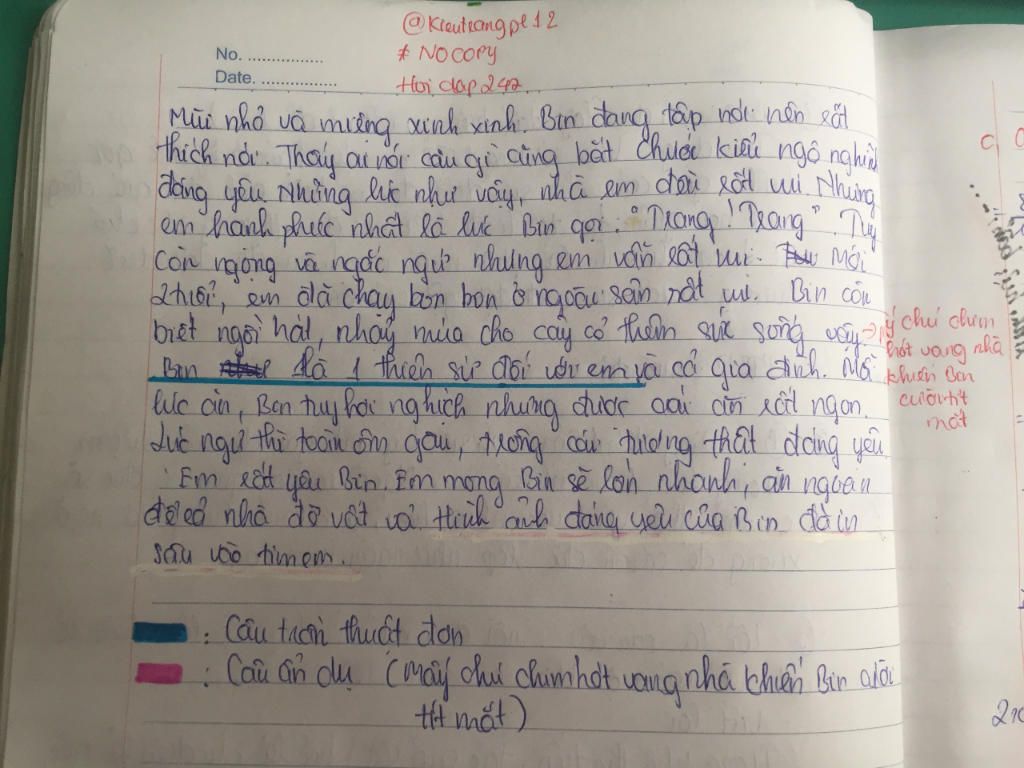 @Kieutrangpt12
* NO COPY
Hoi dap 247
No. ................
Date. ................
Mũi nhỏ và miệng xinh xinh. Bin đang tập nói nên rất
thích nói. Thấy ai nói câu gì cũng bắt chước kiểu ngộ nghĩnh
đáng yêu. Những lúc như vậy, nhà em đều rất vui. Nhưng
em hạnh phúc nhất là lúc Bin gọi: "Trang! Trang". Tuy
còn ngọng và ngốc ngứ nhưng em vẫn rất vui. Mới
2 tuổi, em đã chạy bon bon ở ngoài sân rất vui. Bin còn
biết ngồi hát, nhảy múa cho cây cỏ thêm sức sống vậy.
chú chim
hót vang nhà
khiến Bin
cười tít
mắt
Bin là 1 thiên sứ đối với em và cả gia đình. Mỗi
lúc ăn, Bin tuy hơi nghịch nhưng được cái ăn rất ngon.
Lúc ngủ thì toàn ôm gấu, trông cái tướng thật đáng yêu.
Em rất yêu Bin. Em mong Bin sẽ lớn nhanh, ăn ngoan
để cả nhà đỡ vất vả. Hình ảnh đáng yêu của Bin đã in
sâu vào tim em.
: Câu trần thuật đơn
: Câu ẩn dụ (Mấy chú chim hót vang nhà khiến Bin cười
tít mắt)